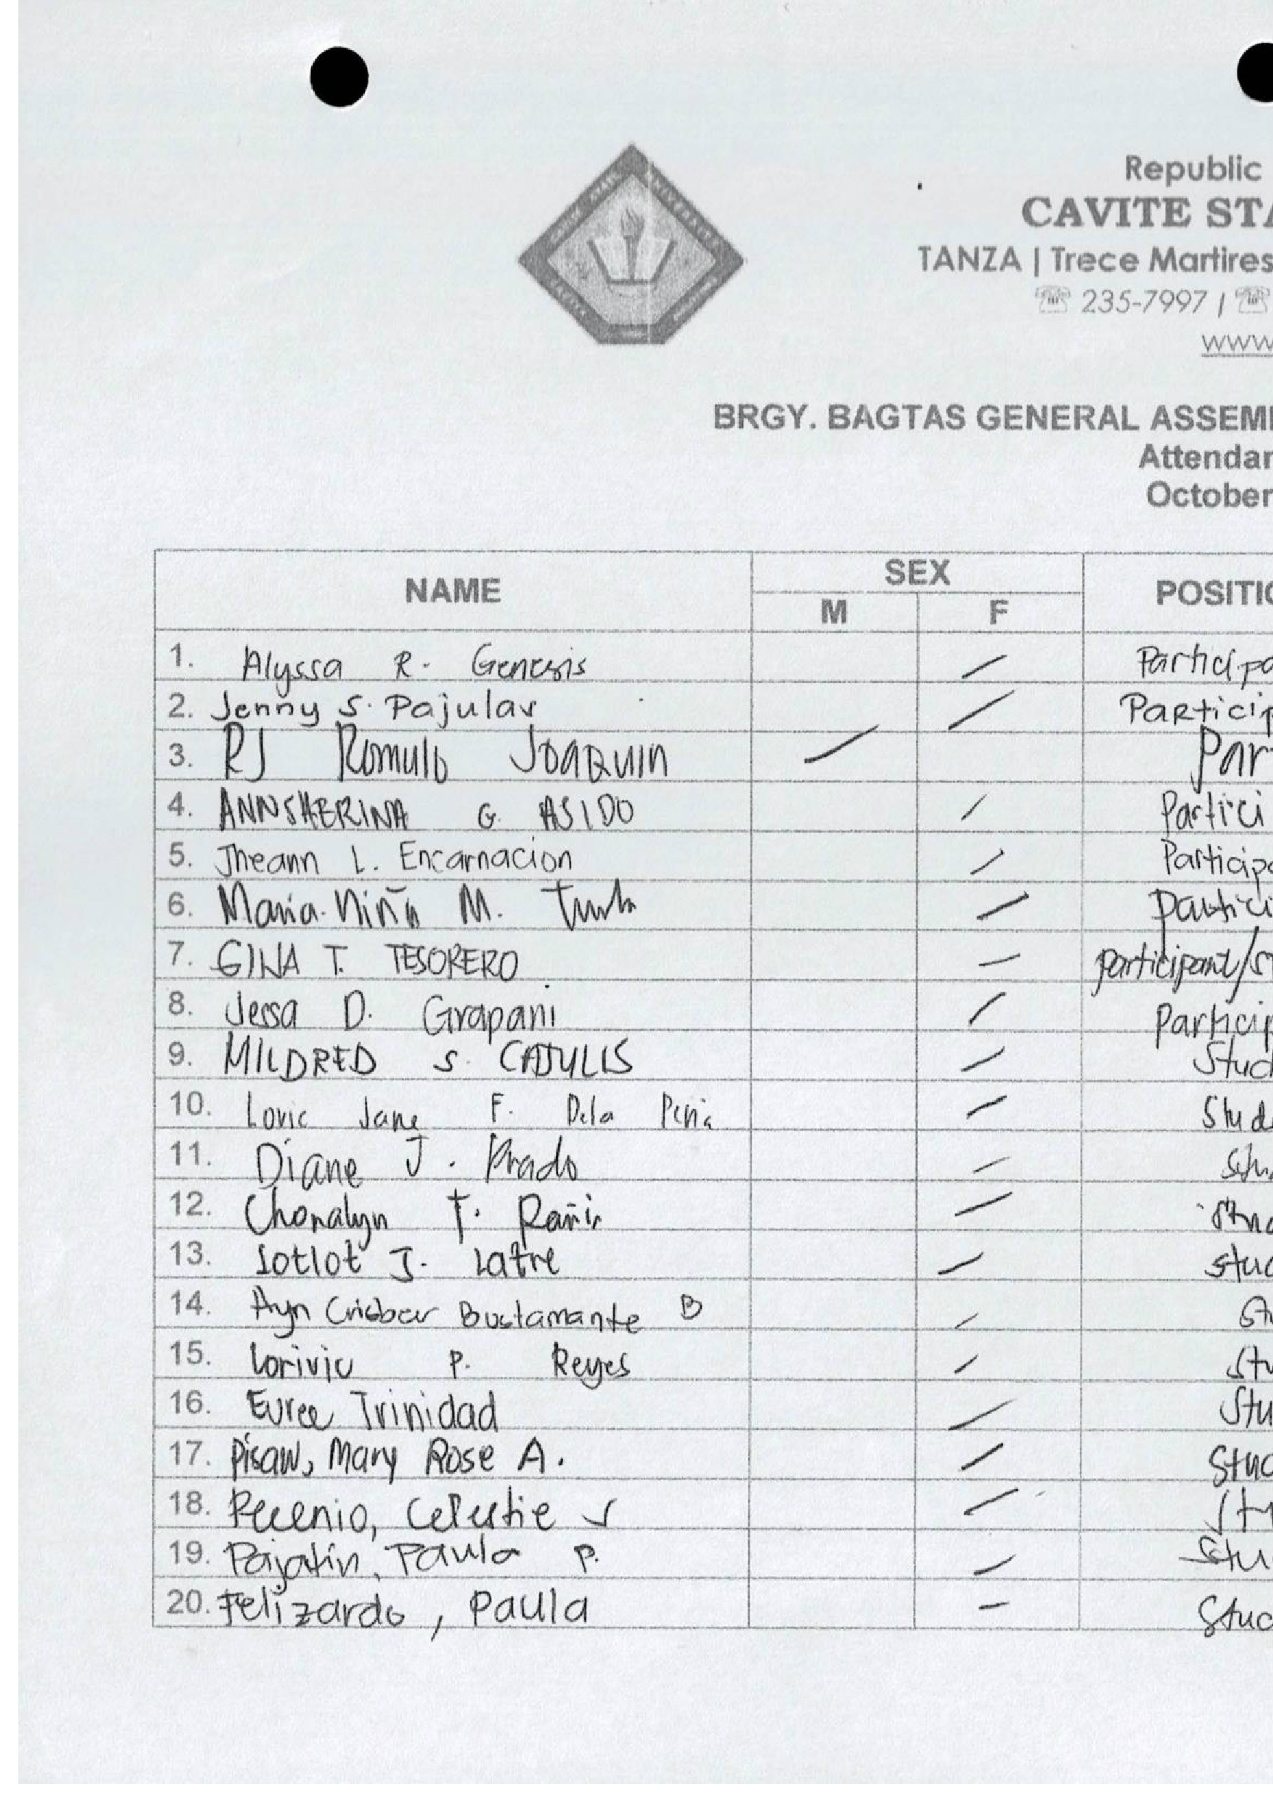 Republic
CAVITE STA
TANZA | Trece Martires
235-7997 |
www
BRGY. BAGTAS GENERAL ASSEM
Attendan
October
NAME SEX POSITIO
M F
1. Alyssa R. Genesis Participa
2. Jenny S. Pajular Particip
3. RJ Romulo JOAQUIN Par
4. ANNSHERINA G. ASIDO Partici
5. Jheann L. Encarnacion Participa
6. Maria Niña M. partici
7. GINA T. TESORERO participant/st
8. Jessa D. Grapani Particip
9. MILDRED S. CAJULIS Stud
10. Lovic Jane F. Dela Peña Stud
11. Diane J. Prado Stu
12. Chonalyn T. Stud
13. Lotlot J. Latre stud
14. Ayn Crisbar Bustamante B Stu
15. P. Reyes Stu
16. Euree Trinidad Stu
17. Pisaw, Mary Rose A. Stud
18. Recenio, Celestie St
19. Pajatin, Paula P. Stu
20. Felizardo, Paula Stud